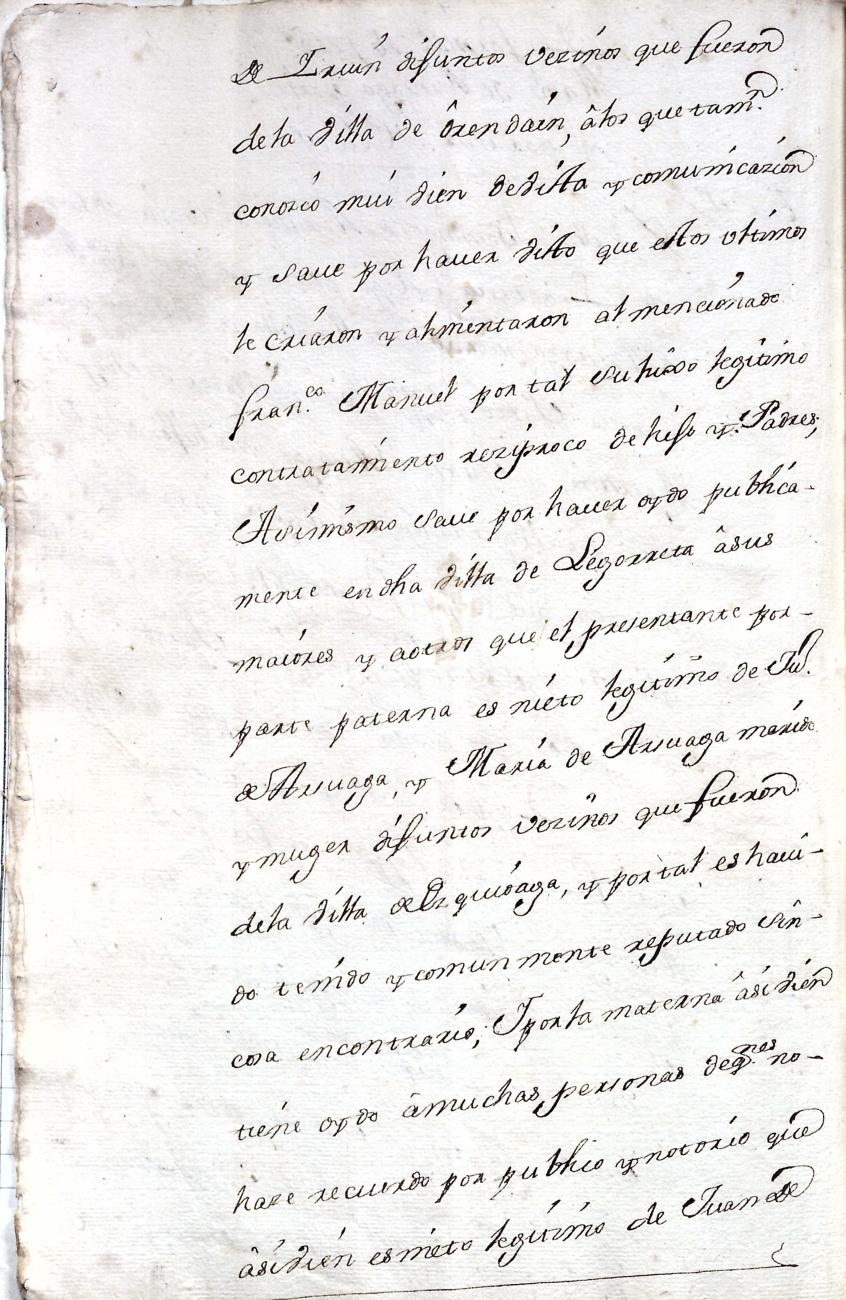 de Iriun difuntos vezinos que fueron
dela villa de ôrendain, âlos que tamn.
conozió mui vien de vista y comunicazion
y save por haver visto que estos vltimos
le criaron y alimentaron al mencionado
Fran.co Manuel por tal su hixo legitimo
contratamiento reziproco de hijo y Padres,
Asimismo save por haver oydo publica-
mente en dha villa de Legorreta âsus
maiores y aotros que el presentante por-
parte paterna es nieto legitimo de Ju.
de Arsuaga, y Maria de Arsuaga marido
y muger difuntos vezinos que fueron
dela villa de Ezquioaga, y portal es havi-
do tenido y comunmente reputado sin-
cosa encontrario; Y porla materna âsivien
tiene oydo âmuchas personas deq.nes no-
haze recuerdo por publico y notorio que
âsivien es nieto legitimo de Juan de